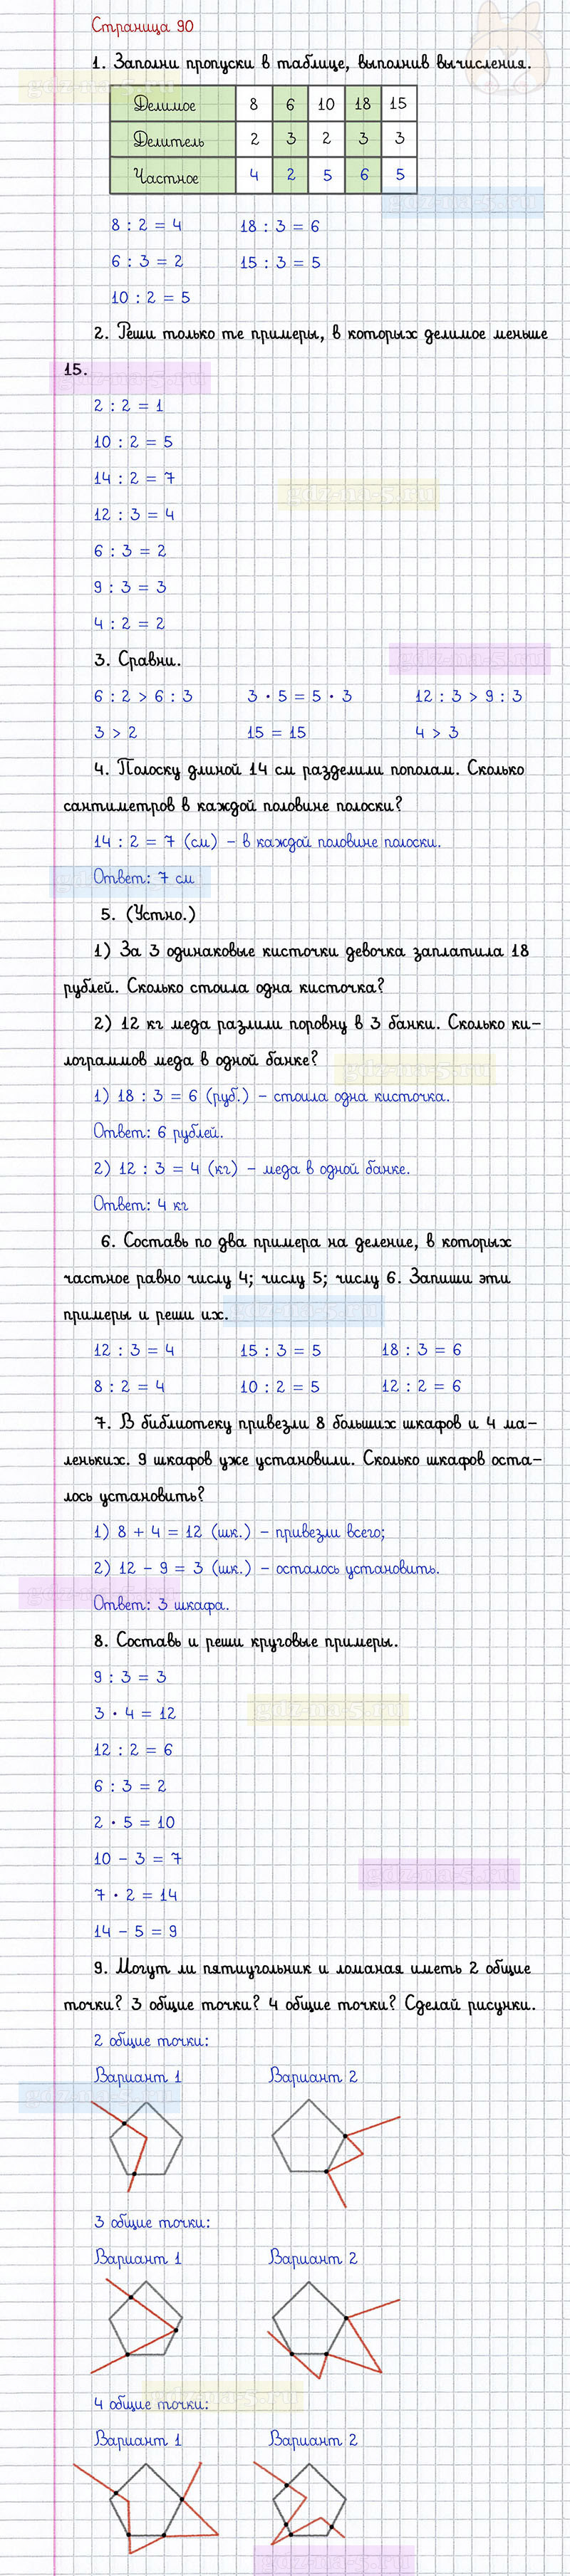 Страница 90
1. Заполни пропуски в таблице, выполнив вычисления.
Делимое 8 6 10 18 15
Делитель 2 3 2 3 3
Частное 4 2 5 6 5
8 : 2 = 4 18 : 3 = 6
6 : 3 = 2 15 : 3 = 5
10 : 2 = 5
2. Реши только те примеры, в которых делимое меньше
15.
2 : 2 = 1
10 : 2 = 5
14 : 2 = 7
gdz-na-5.ru
12 : 3 = 4
6 : 3 = 2
9 : 3 = 3
4 : 2 = 2
3. Сравни.
gdz-na-5.ru
6 : 2 > 6 : 3 3 · 5 = 5 · 3 12 : 3 > 9 : 3
3 > 2 15 = 15 4 > 3
4. Полоску длиной 14 см разделили пополам. Сколько
сантиметров в каждой половине полоски?
14 : 2 = 7 (см) – в каждой половине полоски.
Ответ: 7 см
5. (Устно.)
1) За 3 одинаковые кисточки девочка заплатила 18
рублей. Сколько стоила одна кисточка?
2) 12 кг меда разлили поровну в 3 банки. Сколько ки-
лограммов меда в одной банке?
gdz-na-5.ru
1) 18 : 3 = 6 (руб.) – стоила одна кисточка.
Ответ: 6 рублей.
2) 12 : 3 = 4 (кг) – меда в одной банке.
Ответ: 4 кг
6. Составь по два примера на деление, в которых
частное равно числу 4; числу 5; числу 6. Запиши эти
примеры и реши их.
gdz-na-5.ru
12 : 3 = 4 15 : 3 = 5 18 : 3 = 6
8 : 2 = 4 10 : 2 = 5 12 : 2 = 6
7. В библиотеку привезли 8 больших шкафов и 4 ма-
леньких. 9 шкафов уже установили. Сколько шкафов оста-
лось установить?
1) 8 + 4 = 12 (шк.) – привезли всего;
2) 12 – 9 = 3 (шк.) – осталось установить.
Ответ: 3 шкафа.
8. Составь и реши круговые примеры.
9 : 3 = 3
3 · 4 = 12
gdz-na-5.ru
12 : 2 = 6
6 : 3 = 2
2 · 5 = 10
10 – 3 = 7
gdz-na-5.ru
7 · 2 = 14
14 – 5 = 9
9. Могут ли пятиугольник и ломаная иметь 2 общие
точки? 3 общие точки? 4 общие точки? Сделай рисунки.
2 общие точки:
Вариант 1 Вариант 2
3 общие точки:
Вариант 1 Вариант 2
gdz-na-5.ru
4 общие точки:
Вариант 1 Вариант 2
gdz-na-5.ru